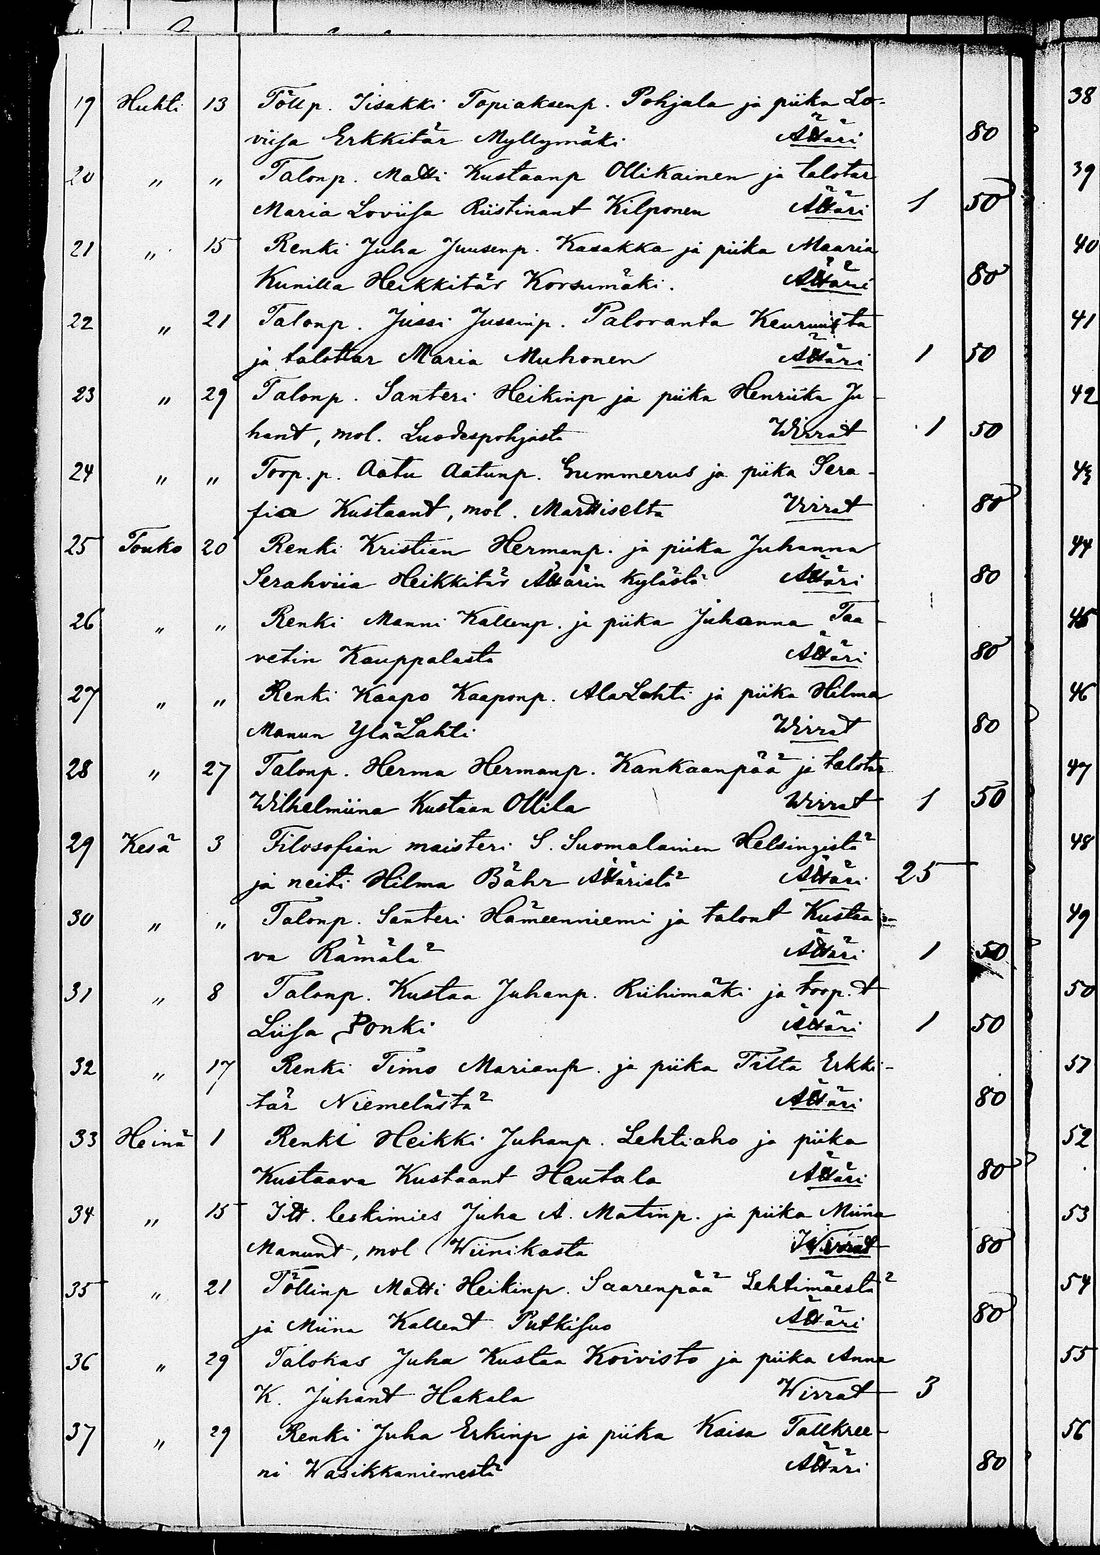 19 Huhti 13 Töllp. Iisakki Topiaksenp. Pohjala ja piika Lo-
viisa Erkkitär Myllymäki Ätsäri 80
20 „ „ Talonp. Matti Kustaanp Ollikainen ja talotar
Maria Loviisa Ristinant Kilponen Ätsäri 1 50
21 „ 15 Renki Juha Juusenp. Kasakka ja piika Maaria
Kunilla Heikkitär Korsumäki. Ätsäri 80
22 „ 21 Talonp. Jussi Jussinp. Paloranta Keuruulta
ja talottar Maria Muhonen Ätsäri 1 50
23 „ 29 Talonp. Santeri Heikinp ja piika Henriika Ju-
hant, mol. Luodespohjasta Wirrat 1 50
24 „ „ Torp.p. Aatu Aatunp. Gummerus ja piika Sera-
fia Kustaant, mol. Marttiselta Virrat 80
25 Touko 20 Renki Kristian Hermanp. ja piika Juhanna
Serahviia Heikkitär Ätsärin kylästä Ätsäri 80
26 „ „ Renki Manni Kallenp. ja piika Juhanna Taa-
vetin Kauppalasta Ätsäri 80
27 „ „ Renki Kaapo Kaaponp. AlaLahti ja piika Hilma
Manun YläLahti Wirrat 80
28 „ 27 Talonp. Herma Hermanp. Kankaanpää ja talotar
Wilhelmiina Kustaan Ollila Wirrat 1 50
29 Kesä 3 Filosofian maisteri S. Suomalainen Helsingistä
ja neiti Hilma Bähr Ätsäristä Ätsäri 25 —
30 „ „ Talonp. Santeri Hämeenniemi ja talont Kustaa-
va Rämälä Ätsäri 1 50
31 „ 8 Talonp. Kustaa Juhanp. Riihimäki ja torp.t
Liisa Ponki Ätsäri 1 50
32 „ 17 Renki Timo Marianp. ja piika Tilta Erkki-
tär Niemelästä Ätsäri 80
33 Heinä 1 Renki Heikki Juhanp. Lehtiaho ja piika
Kustaava Kustaant Hautala Ätsäri 80
34 „ 15 Itt. leskimies Juha A. Matinp. ja piika Miina
Manunt, mol Wiinikasta Wirrat 80
35 „ 21 Töllinp Matti Heikinp. Saarenpää Lehtimäestä
ja Miina Kallent Putkisuo Ätsäri 80
36 „ 29 Talokas Juha Kustaa Koivisto ja piika Anna
K. Juhant Hakala Wirrat 3
37 „ 29 Renki Juha Erkinp ja piika Kaisa Tallkree-
ni Wasikkaniemestä Ätsäri 80
38
39
40
41
42
43
44
45
46
47
48
49
50
51
52
53
54
55
56